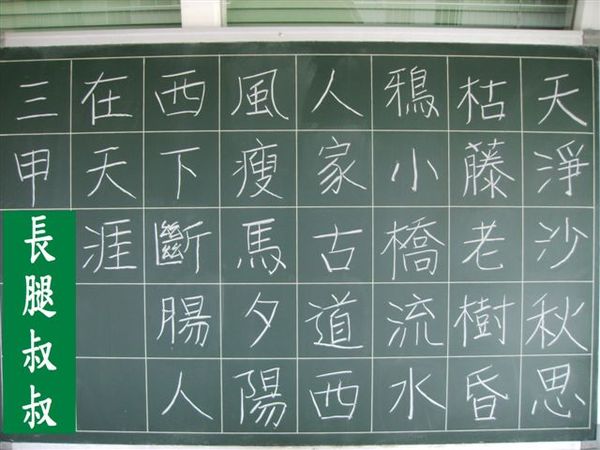 天淨沙秋思
枯藤老樹昏
鴉小橋流水
人家古道西
風瘦馬夕陽
西下斷腸人
在天涯
三甲
長腿叔叔